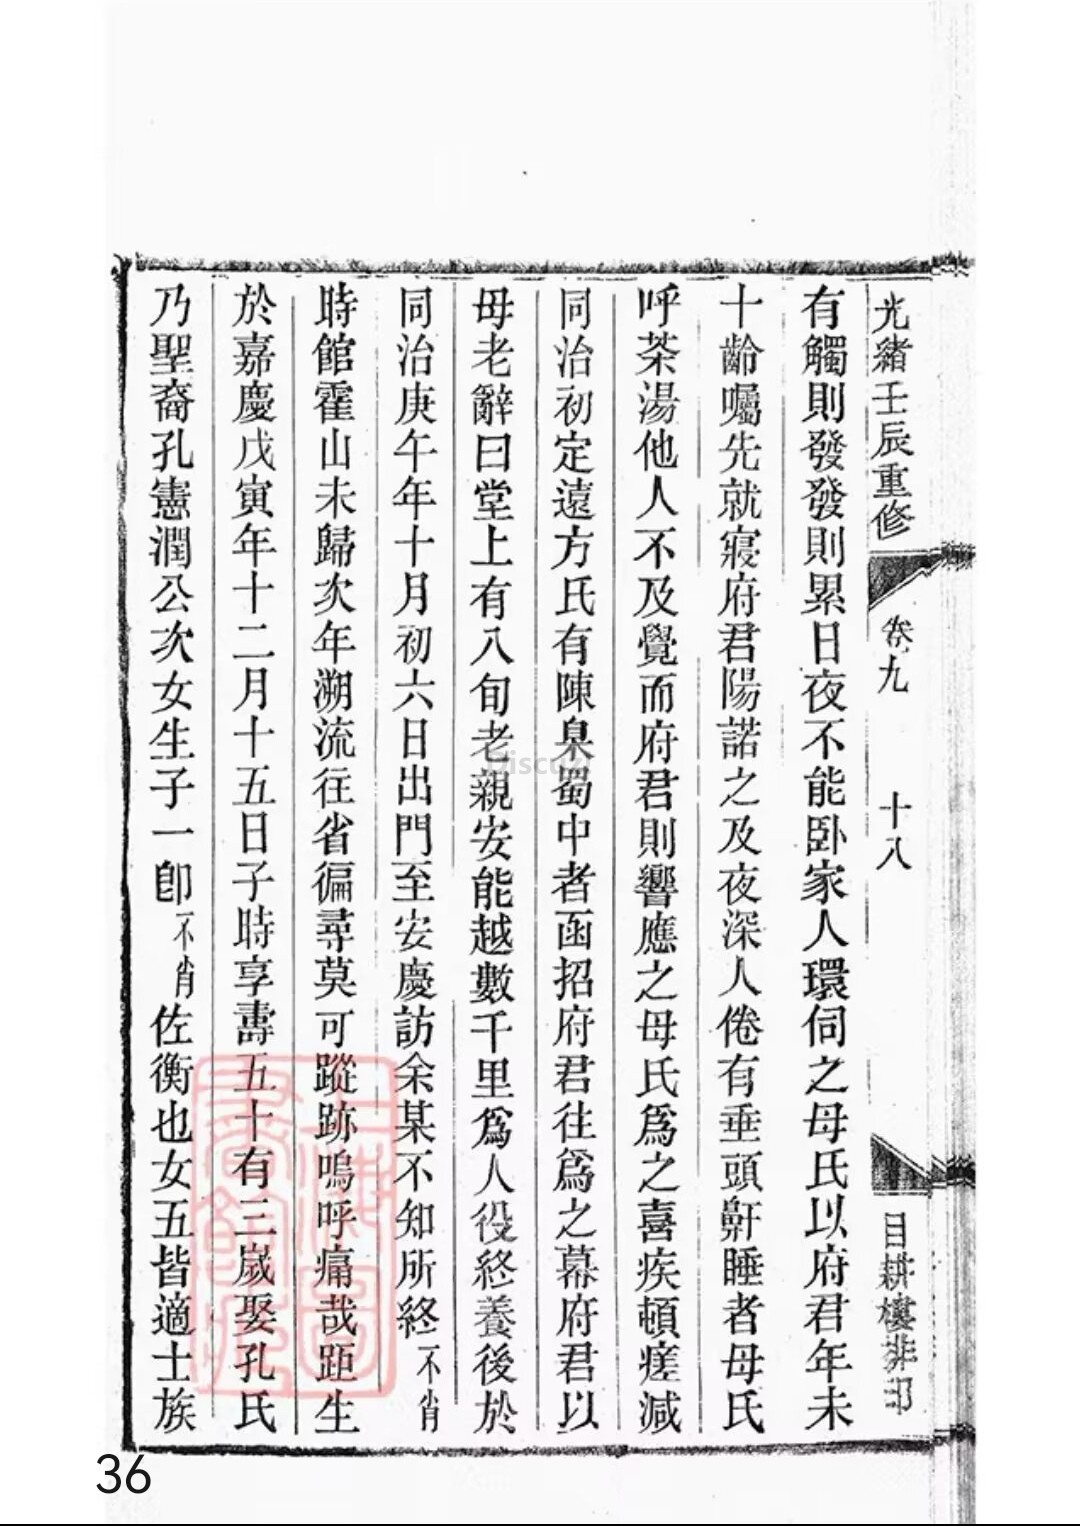 光緒壬辰重修
卷九
十八
目耕樓排印
有觸則發發則累日夜不能卧家人環伺之母氏以府君年未
十齡囑先就寢府君陽諾之及夜深人倦有垂頭鼾睡者母氏
呼茶湯他人不及覺而府君則響應之母氏爲之喜疾頓瘥減
同治初定遠方氏有陳臬蜀中者函招府君往爲之幕府君以
母老辭曰堂上有八旬老親安能越數千里爲人役終養後於
同治庚午年十月初六日出門至安慶訪余某不知所終不肖
時館霍山未歸次年溯流往省徧尋莫可蹤跡嗚呼痛哉距生
於嘉慶戊寅年十二月十五日子時享壽五十有三歲娶孔氏
乃聖裔孔憲潤公次女生子一卽不肖佐衡也女五皆適士族
Discuz!
36